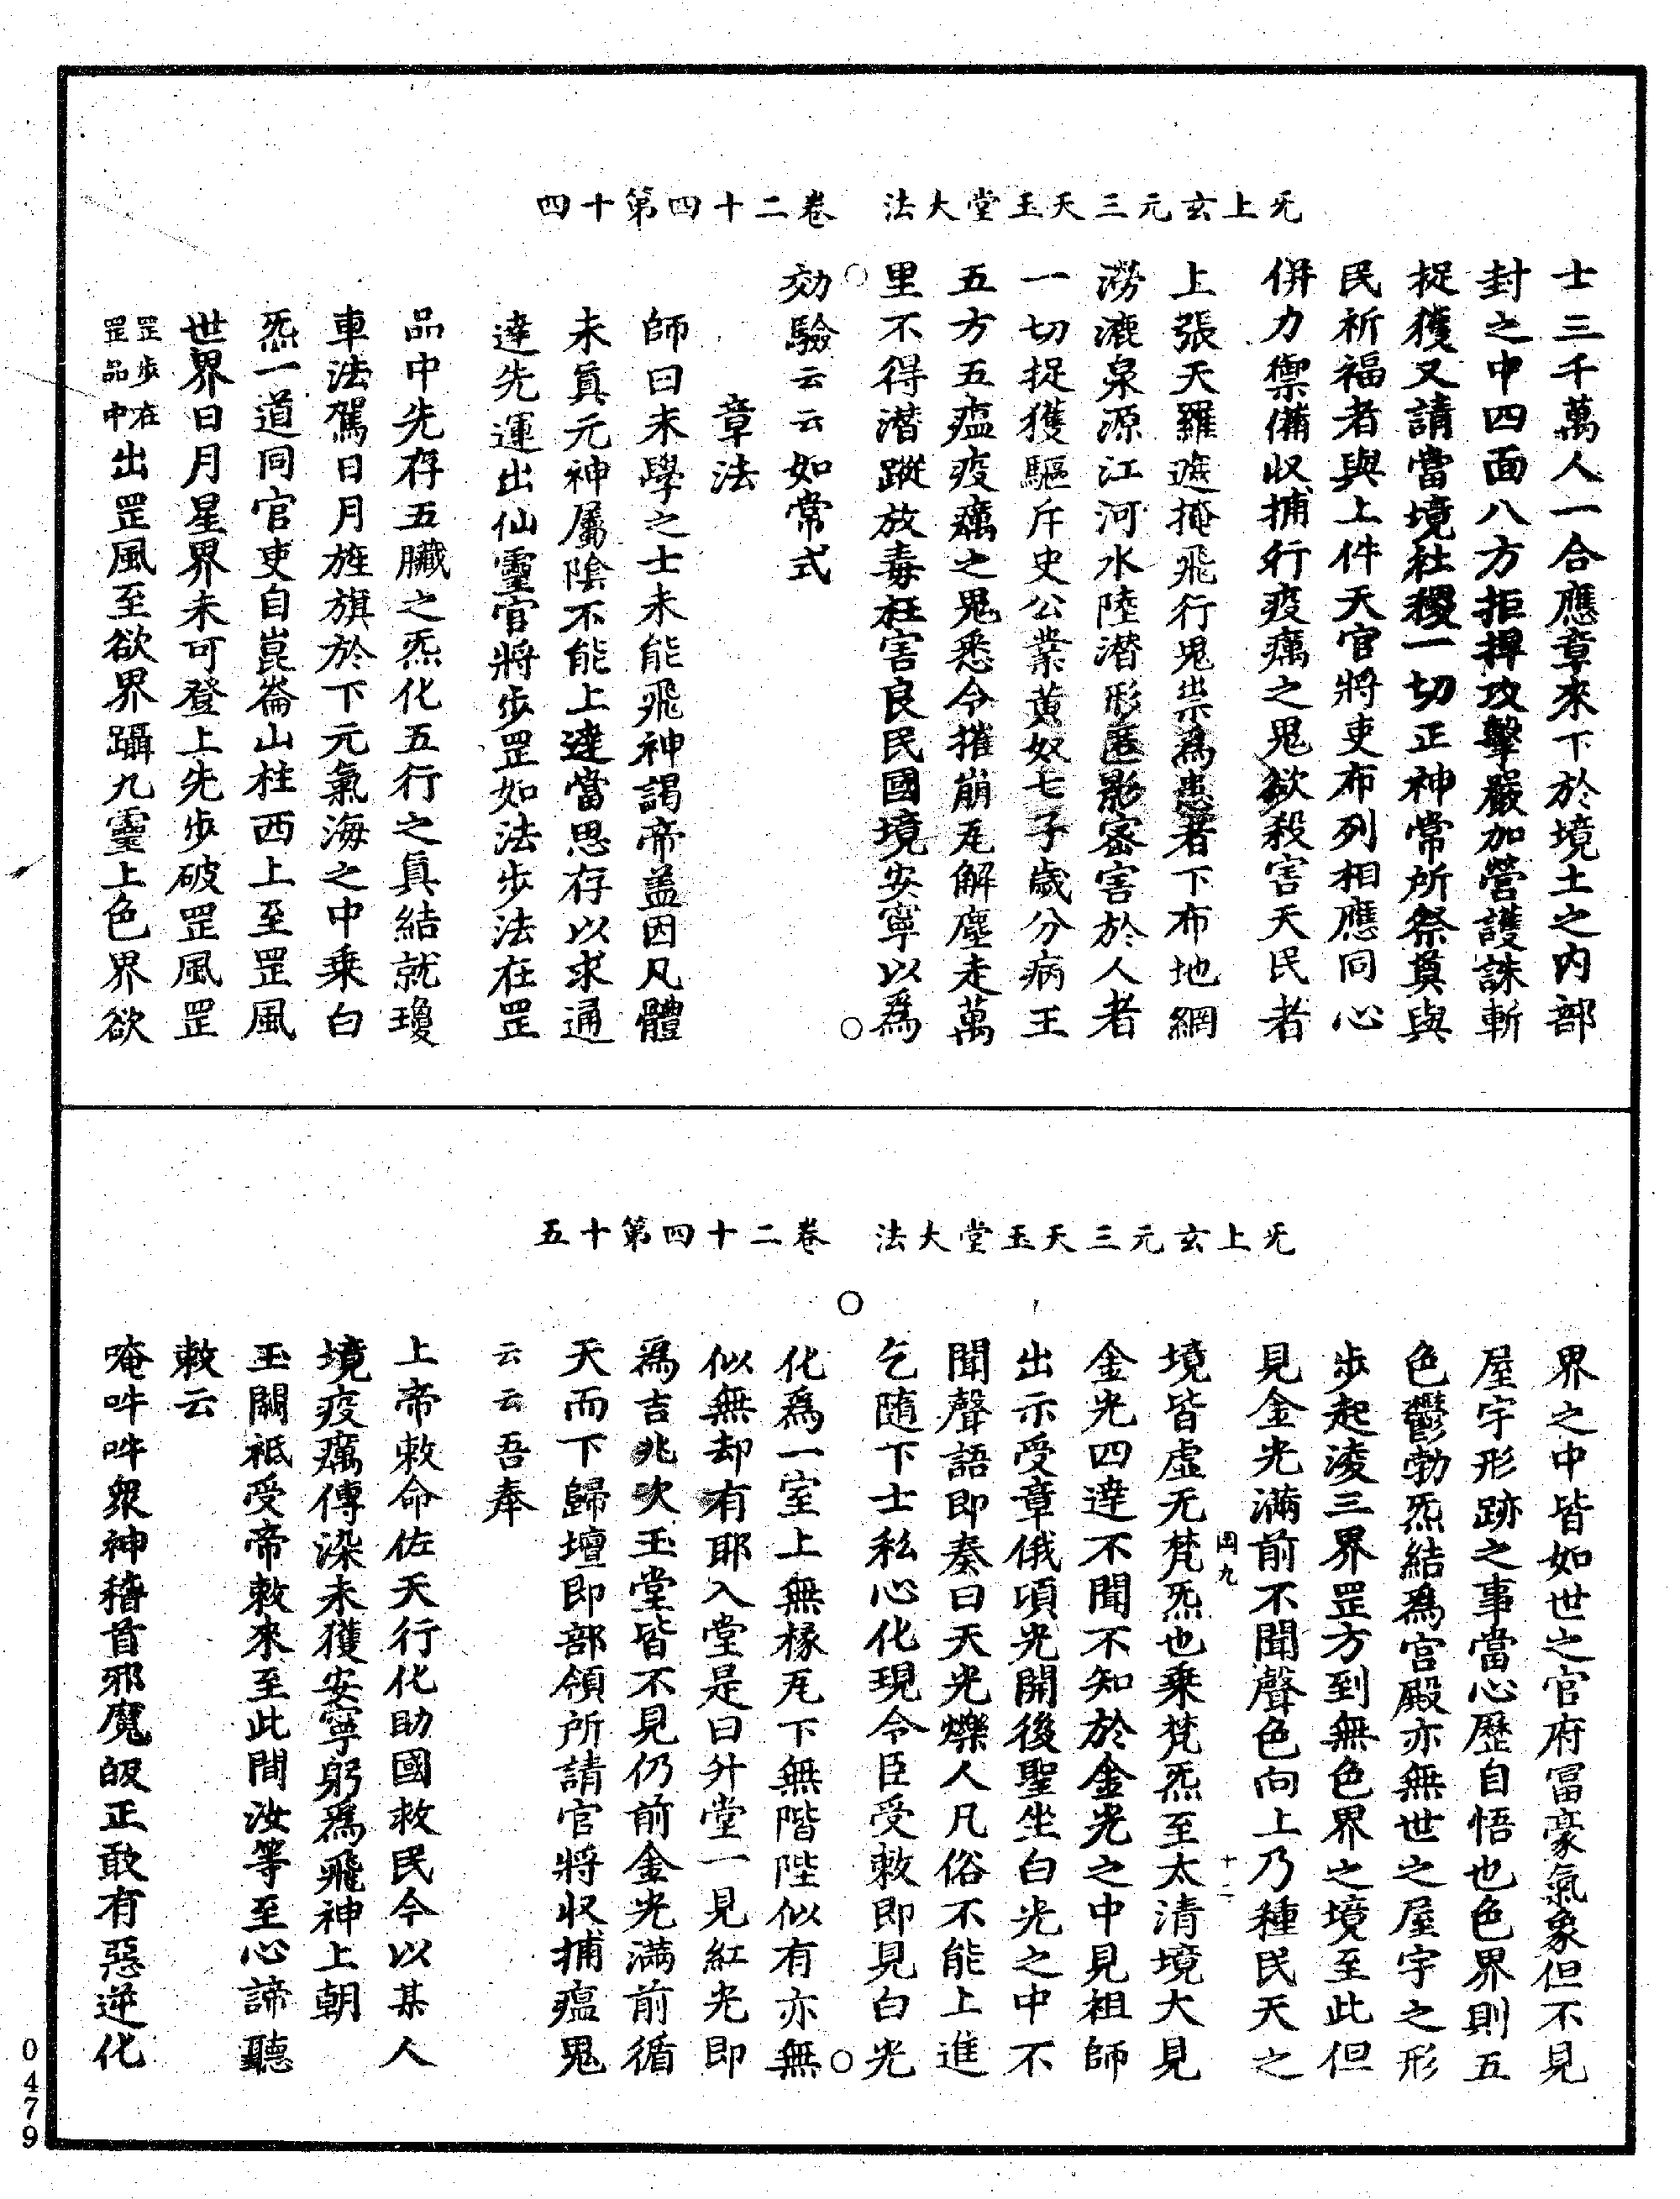 无上玄元三天玉堂大法　卷二十四第十四
士三千萬人一合應章來下於境土之內部
封之中四面八方拒捍攻擊嚴加營護誅斬
捉獲又請當境社稷一切正神常所祭奠與
民祈福者與上件天官將吏布列相應同心
併力禦備收捕行疫癘之鬼欲殺害天民者
上張天羅遮掩飛行鬼祟爲患者下布地網
澇漉泉源江河水陸潛形匿影密害於人者
一切捉獲驅斥史公業黃奴七子歲分病王
五方五瘟疫癘之鬼悉令摧崩瓦解塵走萬
里不得潛蹤放毒枉害良民國境安寧以爲
効驗云云如常式
章法
師曰未學之士未能飛神謁帝蓋因凡體
未眞元神屬陰不能上達當思存以求通
達先運出仙靈官將步罡如法步法在罡
品中先存五臟之炁化五行之眞結就瓊
車法駕日月旌旗於下元氣海之中乘白
炁一道同官吏自崑崙山柱西上至罡風
世界日月星界未可登上先步破罡風罡
罡步在罡品中出罡風至欲界躡九靈上色界欲
无上玄元三天玉堂大法　卷二十四第十五
界之中皆如世之官府冨豪氣象但不見
屋宇形跡之事當心歷自悟也色界則五
色鬱勃炁結爲宮殿亦無世之屋宇之形
步起淩三界罡方到無色界之境至此但
見金光滿前不聞聲色向上乃種民天之
國九　十二
境皆虛无梵炁也乘梵炁至太清境大見
金光四達不聞不知於金光之中見祖師
出示受章俄頃光開後聖坐白光之中不
聞聲語即奏曰天光爍人凡俗不能上進
乞随下士私心化現令臣受敕即見白光
化爲一室上無椽瓦下無階陛似有亦無
似無却有耶入堂是曰升堂一見紅光即
爲吉兆次玉堂皆不見仍前金光滿前循
天而下歸壇即部領所請官將收捕瘟鬼
云云吾奉
上帝敕命佐天行化助國救民今以某人
境疫癘傳染未獲安寧躬爲飛神上朝
玉闕祇受帝敕來至此間汝等至心諦聽
敕云
唵吽吽衆神稽首邪魔皈正敢有惡逆化
0479